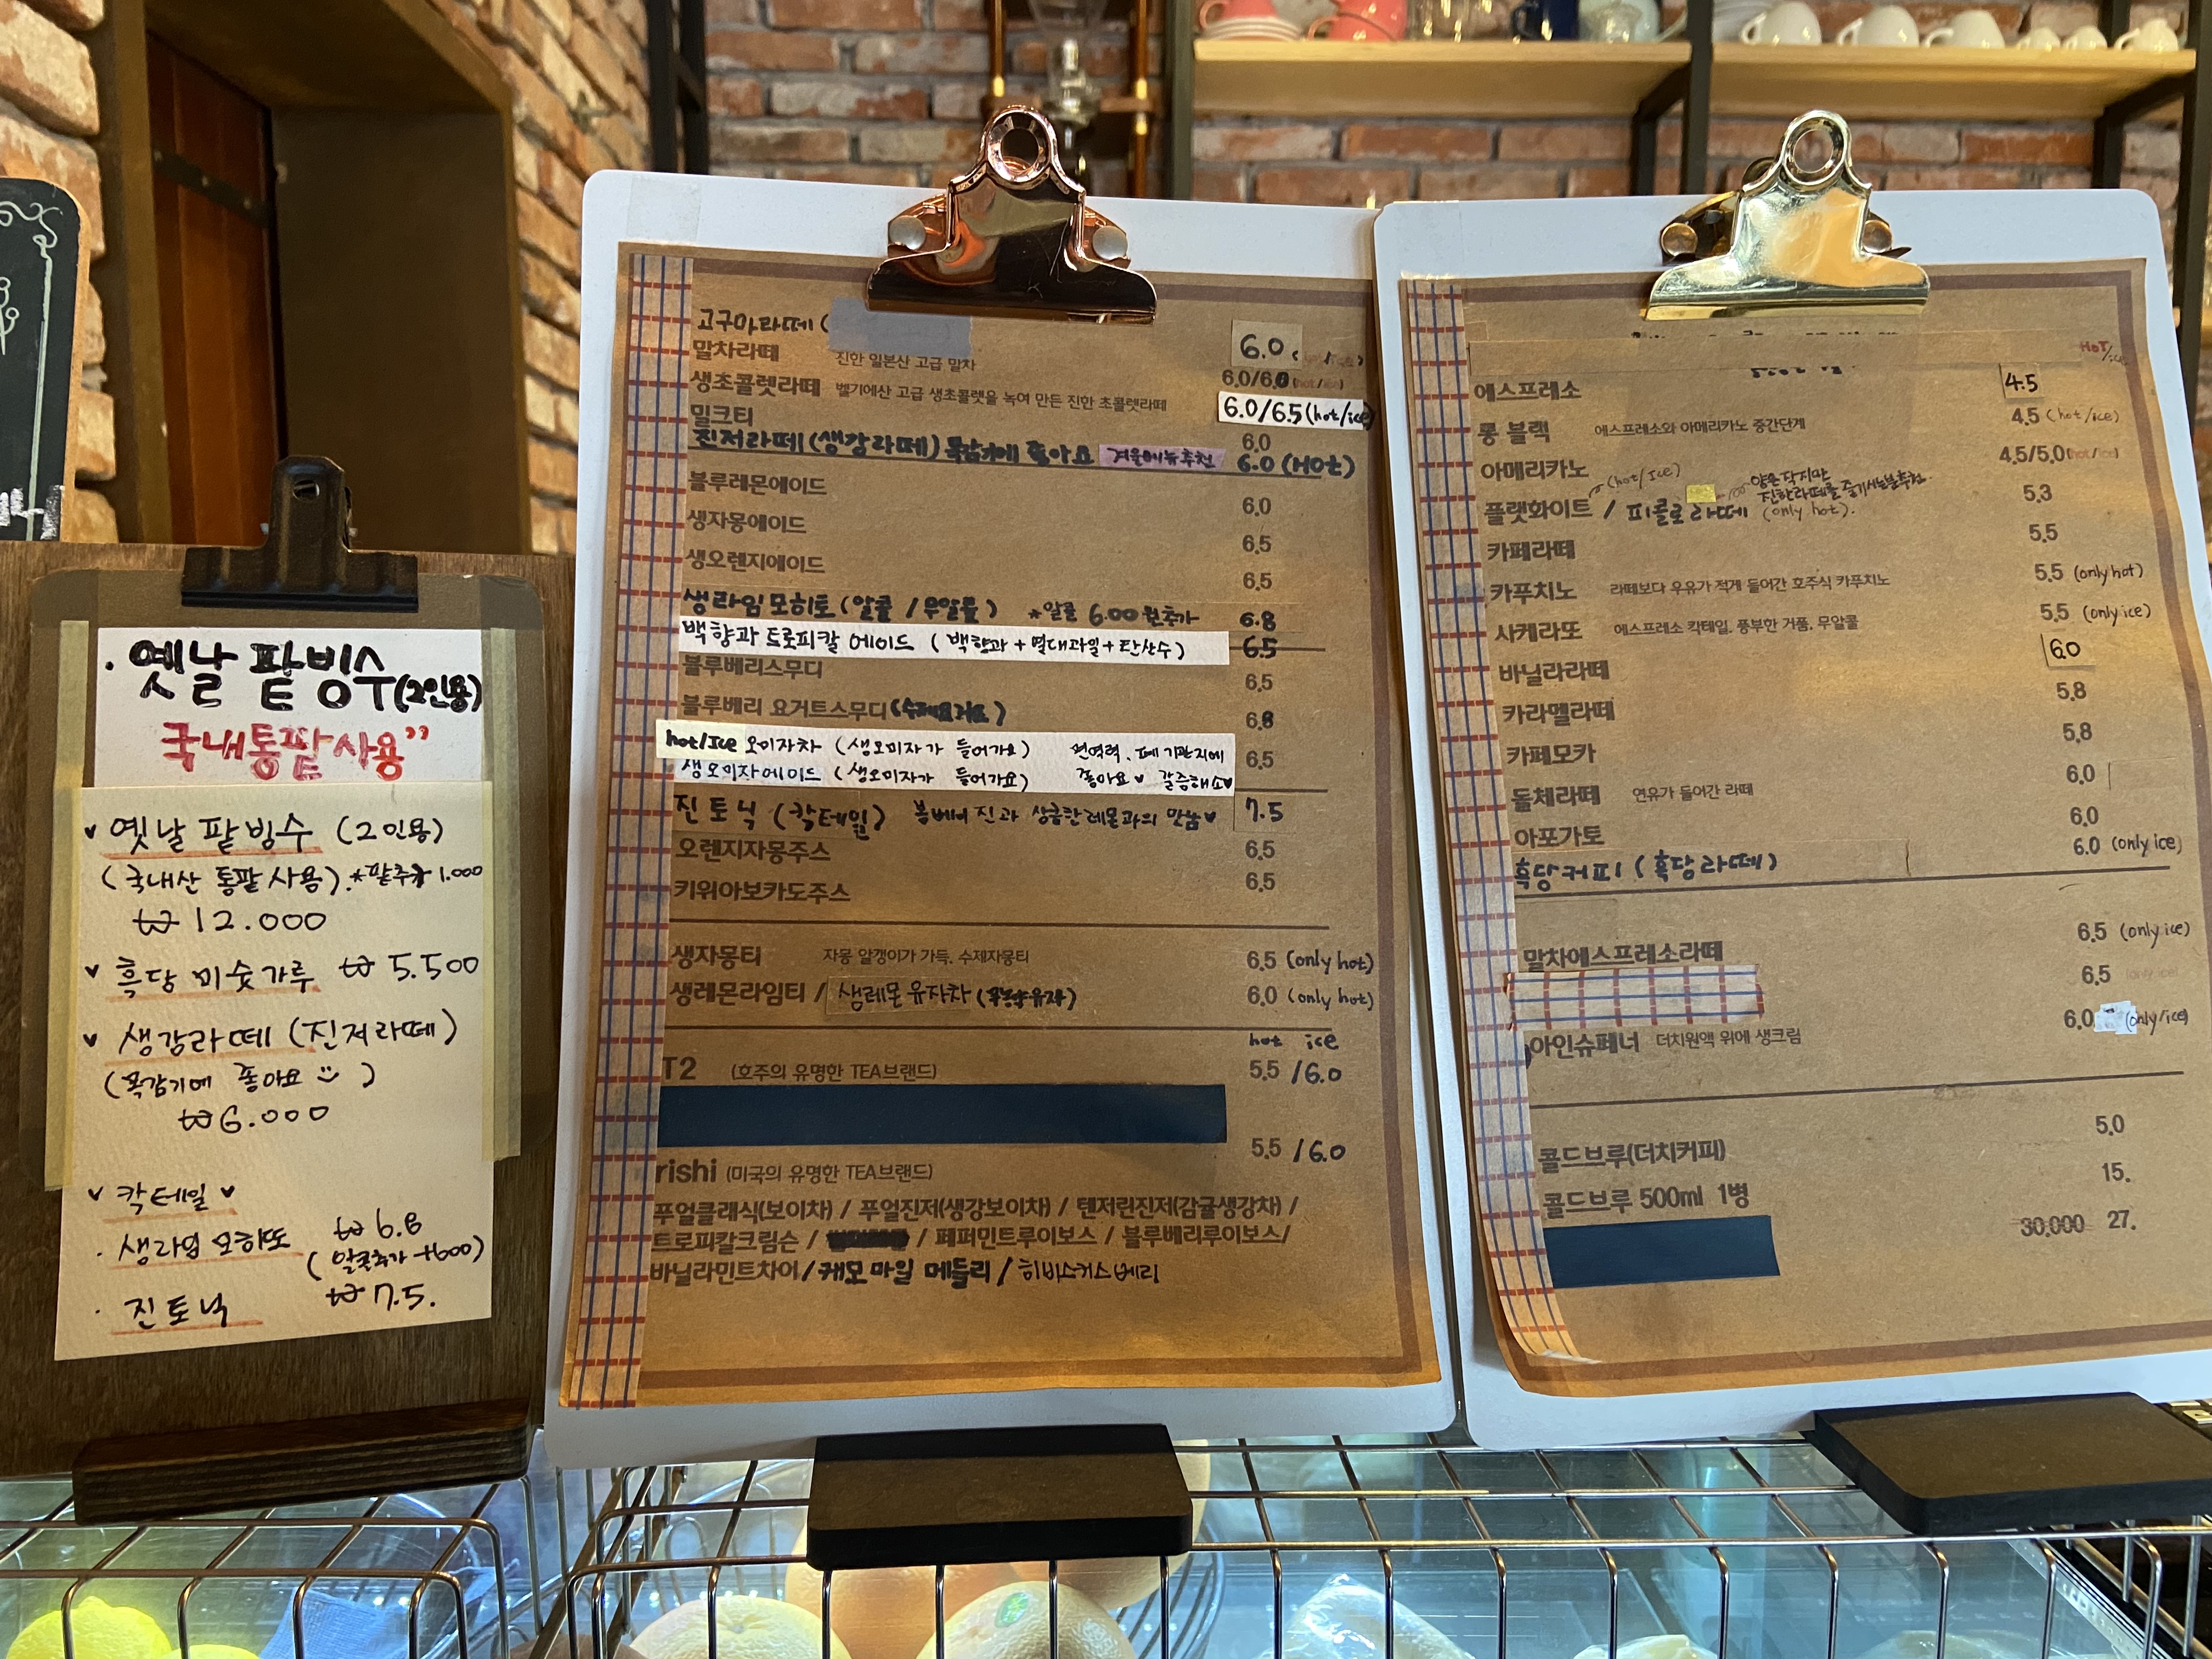 옛날 팥빙수(2인용)
국내통팥사용"
옛날 팥빙수 (2인용)
(국내산 통팥 사용).*팥추가 1.000
₩ 12.000
흑당 미숫가루 ₩ 5.500
생강라떼 (진저라떼)
(목감기에 좋아요 )
₩6.000
칵테일
생라임 모히또 ₩ 6.8
(알콜추가 +600)
진토닉 ₩ 7.5.
고구마라떼 ( 6.0
말차라떼 진한 일본산 고급 말차 6.0/6.0 (hot/ice)
생초콜렛라떼 벨기에산 고급 생초콜렛을 녹여 만든 진한 초콜렛라떼 6.0/6.5 (hot/ice)
밀크티 6.0
진저라떼 (생강라떼) 목감기에 좋아요 겨울메뉴추천 6.0 (HOT)
블루레몬에이드 6.0
생자몽에이드 6.5
생오렌지에이드 6.5
생라임 모히토 (알콜 / 무알콜) *알콜 6.00 원추가 6.8
백향과 트로피칼 에이드 (백향과 + 열대과일 + 탄산수) 6.5
블루베리스무디 6.5
블루베리 요거트스무디 (수제요거트) 6.8
hot/Ice 오미자차 (생오미자가 들어가요) 면역력. 폐 기관지에 6.5
생오미자에이드 (생오미자가 들어가요) 좋아요♥ 갈증해소♥
진토닉 (칵테일) 봄베이 진과 상큼한 레몬과의 만남♥ 7.5
오렌지자몽주스 6.5
키위아보카도주스 6.5
생자몽티 자몽 알갱이가 가득. 수제자몽티 6.5 (only hot)
생레몬라임티 / 생레몬 유자차 6.0 (only hot)
hot ice
T2 (호주의 유명한 TEA브랜드) 5.5 /6.0
5.5 /6.0
rishi (미국의 유명한 TEA브랜드)
푸얼클래식(보이차) / 푸얼진저(생강보이차) / 텐저린진저(감귤생강차) /
트로피칼크림슨 / / 페퍼민트루이보스 / 블루베리루이보스/
바닐라민트차이/캐모마일 메들리 / 히비스커스베리
HOT/ice
에스프레소 4.5
롱 블랙 에스프레소와 아메리카노 중간단계 4.5 (hot/ice)
아메리카노 4.5/5.0 (hot/ice)
(hot/Ice) 양은 작지만
진한라떼를 즐기시는분추천
플랫화이트 / 피콜로라떼 (only hot). 5.3
카페라떼 5.5
카푸치노 라떼보다 우유가 적게 들어간 호주식 카푸치노 5.5 (only hot)
사케라또 에스프레소 칵테일. 풍부한 거품, 무알콜 5.5 (only ice)
바닐라라떼 6.0
카라멜라떼 5.8
카페모카 5.8
돌체라떼 연유가 들어간 라떼 6.0
아포가토 6.0
흑당커피 (흑당라떼) 6.0 (only ice)
말차에스프레소라떼 6.5 (only ice)
6.5 (only ice)
아인슈페너 더치원액 위에 생크림 6.0 (only/ice)
콜드브루(더치커피) 5.0
콜드브루 500ml 1병 15.
30,000 27.